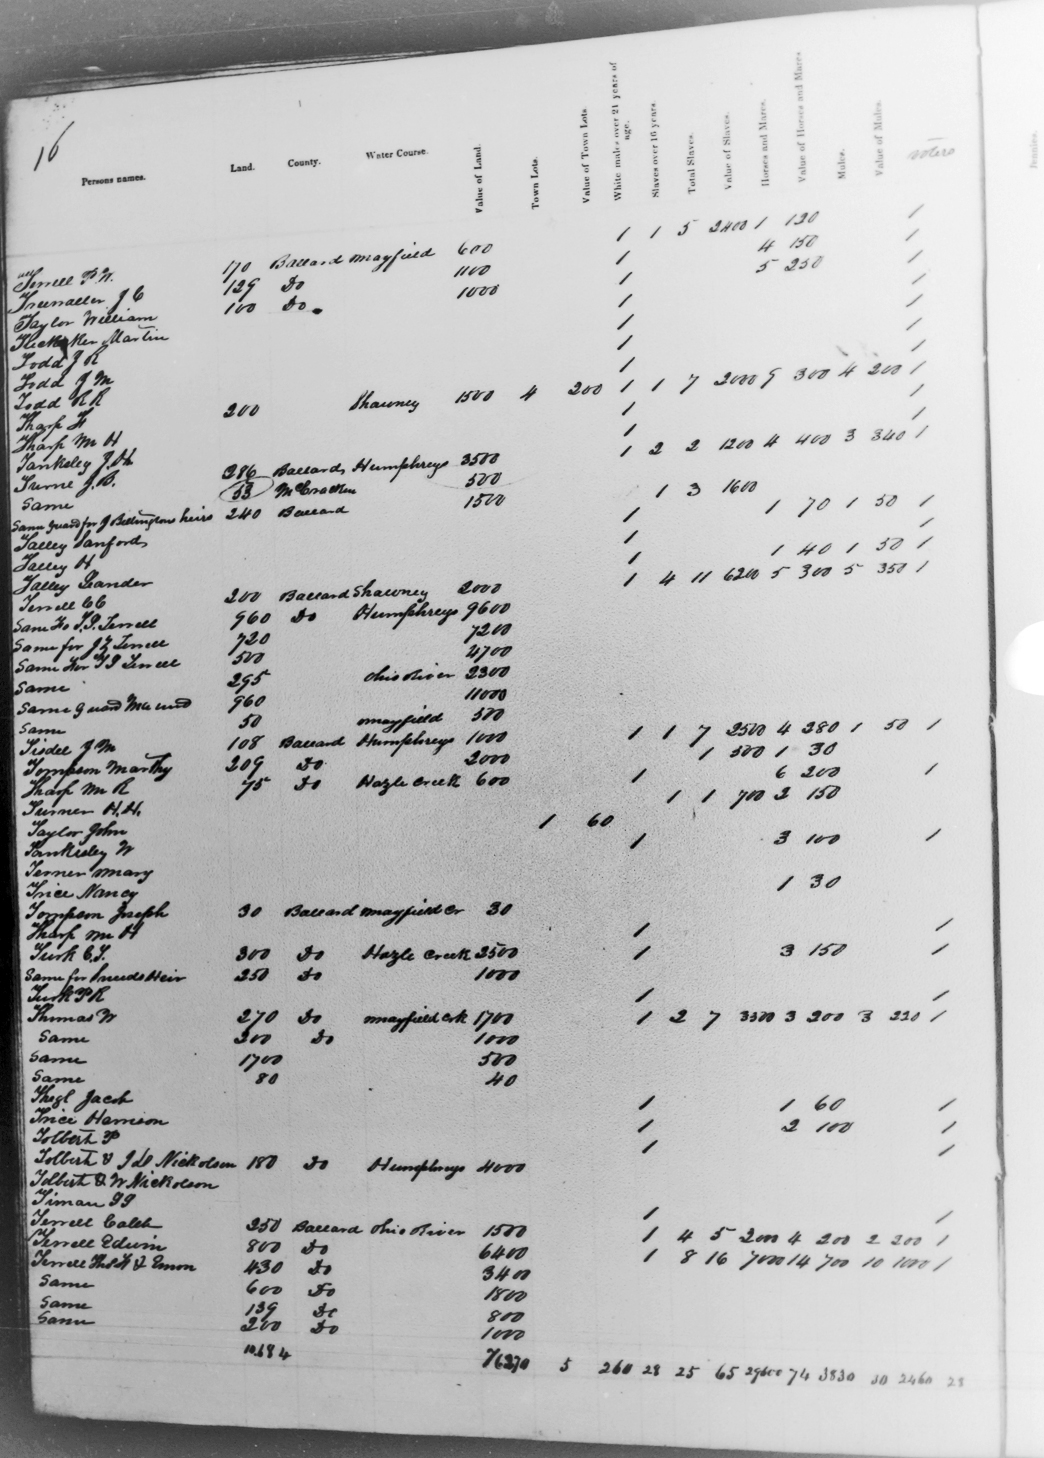 16
Persons names. Land. County. Water Course. Value of Land. Town Lots. Value of Town Lots White males over 21 years of age. Slaves over 16 years. Total Slaves. Value of Slaves. Horses and Mares. Value of Horses and Mares Mules. Value of Mules. voters
Terrell P. W. 170 Ballard Mayfield 600 1 1 5 2400 1 120 1
J C 129 Do 1100 1 4 150 1
Taylor William 100 Do 1000 1 5 250 1
Martin 1 1
Todd J R 1 1
Todd J M 1 1
Todd R R 1 1
Tharp H 200 Shawney 1500 4 200 1 1 7 2000 9 300 4 200 1
Tharp M H 1 1
Tanksley J. H. 1 1
Turne J. B. 386 Ballard Humphreys 3500 1 2 2 1200 4 400 3 340 1
Same 53 McCracken 500
Same guard for J Billingtons heirs 240 Ballard 1500 1 3 1600
Talley Sanford 1 1 70 1 50 1
Talley H 1 1
Talley Leander 1 1 40 1 50 1
Terrell C C 200 Ballard Shawney 2000 1 4 11 6200 5 300 5 350 1
Same for T. P. Terrell 960 Do Humphreys 9600
Same for J Z Terrell 720 7200
Same for T J Terrell 500 4700
Same 295 Ohio River 2300
Same guard 960 11000
Same 50 Mayfield 500
Tisdel J M 108 Ballard Humphreys 1000 1 1 7 2500 4 280 1 50 1
Tompson Marthy 209 Do 2000 1 500 1 30
Tharp M R 75 Do Hazle Creek 600 1 6 200 1
Turner H. H. 1 1 700 2 150
Taylor John 1 60
Tankisley W 1 3 100 1
Terner Mary
Trice Nancy 1 30
Tompson Joseph 30 Ballard Mayfield Cr 30
Tharp M H 1 1
Turk C. T. 300 Do Hazle Creek 2500 1 3 150 1
Same for Sneeds Heir 250 Do 1000
Turk P R 1 1
Thomas W 270 Do Mayfield Crk 1700 1 2 7 3300 3 200 3 220 1
Same 200 Do 1000
Same 1700 500
Same 80 40
Jacob 1 1 60 1
Trice Harrison 1 2 100 1
Tolbert P 1 1
Tolbert & Nickolson 180 Do Humphreys 4000
Tolbert & W Nickolson
Timan 1 1
Terrell Caleb 250 Ballard Ohio River 1500 1 4 5 2000 4 200 2 200 1
Terrell Edwin 800 Do 6400 1 8 16 7000 14 700 10 1000 1
Terrell & Emon 430 Do 3400
Same 600 Do 1800
Same 139 Do 800
Same 200 Do 1000
10684 76270 5 260 28 25 65 29600 74 3830 30 2460 28
Jennies.